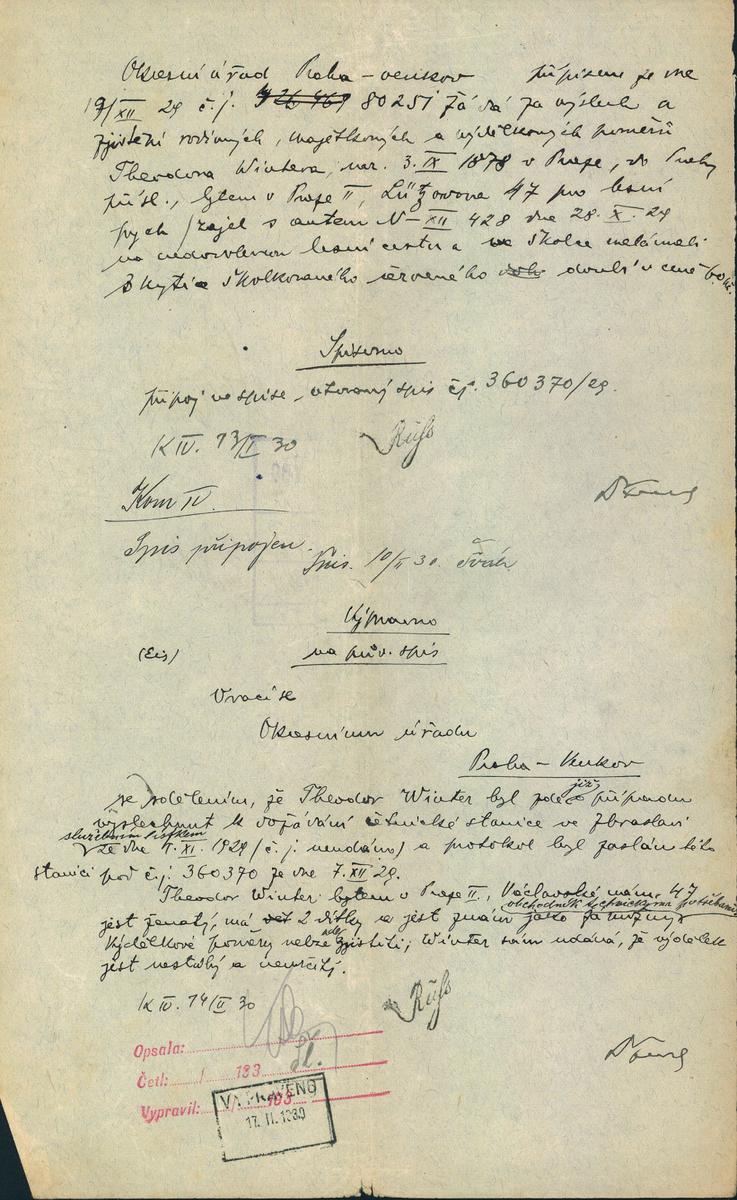 Okresní úřad Praha – venkov přípisem ze dne
9/XII 29 č.j. 80251 žádá za výslech a
zjištění rodinných, majetkových a výdělkových poměrů
Theodora Wintera, nar. 3. IX 1878 v Praze, do Prahy
přísl., bytem v Praze II, Lützowova 47 pro lesní
pych /zajel s autem N–XII 428 dne 28. X. 29
na nedovolenou lesní cestu a ve školce nalámali
3 kytice školkovaného červeného doubí v ceně 60 Kč.
Spisovno
připoj ve spise uvedený spis čj. 360370/29.
K IV. 13/I 30
Kom IV
Spis připojen.
Spis. 10/II 30.
Výpravno
na pův. spis
(Eis)
Vrací se
Okresnímu úřadu
Praha – Venkov
se sdělením, že Theodor Winter byl již v případu
vyslechnut k dožádání četnické stanice ve Zbraslavi
služebním lístkem
ze dne 1. XI. 1929 /č.j. neudáno/ a protokol byl zaslán této
stanici pod čj. 360370 ze dne 7. XII 29.
Theodor Winter bytem v Praze II, Václavské nám. 47
obchodník technickými potřebami
jest ženatý, má 2 dítky a jest znám jako zámožný
Výdělkové poměry nelze zde zjistiti; Winter sám udává, že výdělek
jest nestálý a neurčitý.
K IV. 14/II 30
Opsala:
Četl: / 193
Vypravil: / 193
VYPRAVENO
17. II. 1930